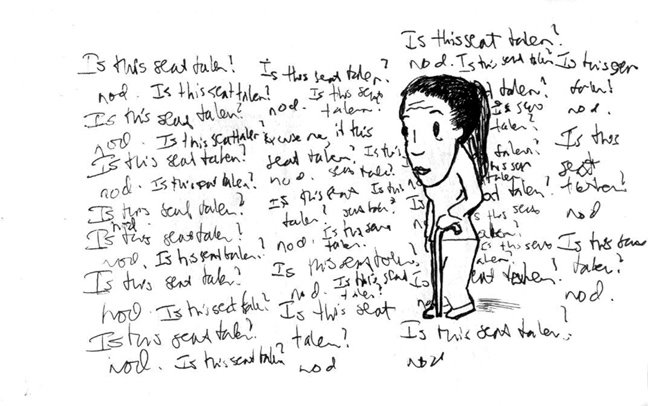 Is this seat taken?
nod. Is this seat taken?
Is this seat taken?
nod. Is this seat taken?
Is this seat taken?
nod. Is this seat taken?
Is this seat taken?
nod.
Is this seat taken?
nod. Is this seat taken?
Is this seat taken?
nod. Is this seat taken?
Is this seat taken?
nod. Is this seat taken?
Is this seat taken?
nod. Is this seat
taken?
Excuse me, is this
seat taken? Is this
nod. seat taken?
Is this seat Is this
taken? seat taken?
nod. Is this seat
taken?
Is this seat taken?
nod. Is this seat
taken?
Is this seat
taken?
nod
Is this seat taken?
nod. Is this seat taken?
taken?
Is seat
taken?
taken?
seat
taken?
this seat
taken?
is this seat
taken?
seat taken?
Is this seat taken?
nod
Is this seat
taken?
nod.
Is this
seat
taken?
nod
Is this seat
taken?
nod.